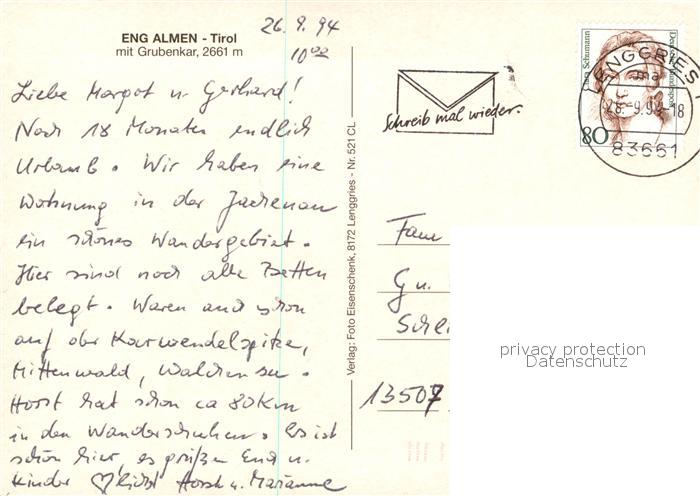 ENG ALMEN - Tirol
mit Grubenkar, 2661 m
26.9.94
10⁰⁰
Liebe Margot u. Gerhard!
Nach 18 Monaten endlich
Urlaub. Wir haben eine
Wohnung in der Jachenau
ein schönes Wandergebiet.
Hier sind noch alle Betten
belegt. Waren auch schon
auf der Karwendelspitze,
Mittenwald, Walchensee.
Horst hat schon ca 80 Km
in den Wanderschuhen. Es ist
schön hier, es grüßen Euch u.
Kinder ♡lichst Horst u. Marianne
Verlag: Foto Eisenschenk, 8172 Lenggries - Nr. 521 CL
Schreib mal wieder.
Clara Schumann
Deutsche Bundespost
80
LENGGRIES 1
ma
26.-9.94-18
83661
Fam
G u.
Schl
13507
privacy protection
Datenschutz